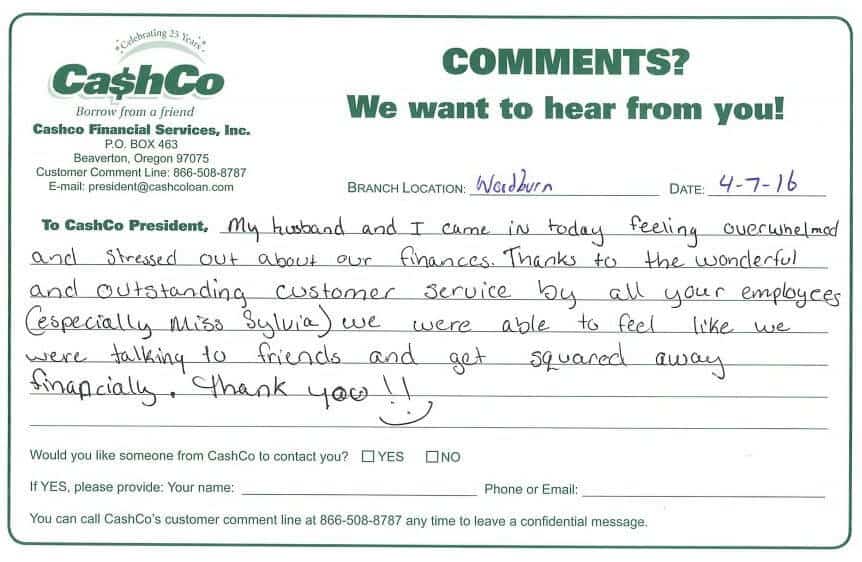 Celebrating 25 Years
Ca$hCo
Borrow from a friend
Cashco Financial Services, Inc.
P.O. BOX 463
Beaverton, Oregon 97075
Customer Comment Line: 866-508-8787
E-mail: president@cashcoloan.com
COMMENTS?
We want to hear from you!
BRANCH LOCATION: Woodburn DATE: 4-7-16
To CashCo President, My husband and I came in today feeling overwhelmed
and stressed out about our finances. Thanks to the wonderful
and outstanding customer service by all your employees
(especially Miss Sylvia) we were able to feel like we
were talking to friends and get squared away
financially. Thank you!!
Would you like someone from CashCo to contact you? ☐ YES ☐ NO
If YES, please provide: Your name: Phone or Email:
You can call CashCo's customer comment line at 866-508-8787 any time to leave a confidential message.